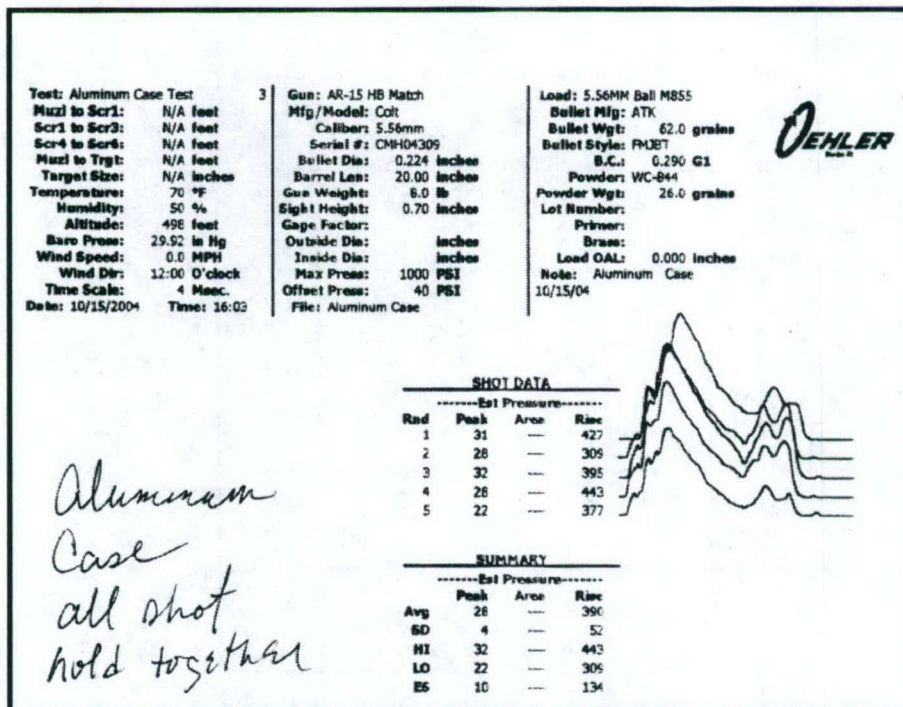 Test: Aluminum Case Test 3
Muzl to Scr1: N/A feet
Scr1 to Scr3: N/A feet
Scr4 to Scr6: N/A feet
Muzl to Trgt: N/A feet
Target Size: N/A inches
Temperature: 70 °F
Humidity: 50 %
Altitude: 498 feet
Baro Press: 29.92 in Hg
Wind Speed: 0.0 MPH
Wind Dir: 12:00 O'clock
Time Scale: 4 Msec.
Date: 10/15/2004 Time: 16:03
Gun: AR-15 HB Match
Mfg/Model: Colt
Caliber: 5.56mm
Serial #: CMH04309
Bullet Dia: 0.224 inches
Barrel Len: 20.00 inches
Gun Weight: 8.0 lb
Sight Height: 0.70 inches
Gage Factor:
Outside Dia: inches
Inside Dia: inches
Max Press: 1000 PSI
Offset Press: 40 PSI
File: Aluminum Case
Load: 5.56MM Ball M855
Bullet Mfg: ATK
Bullet Wgt: 62.0 grains
Bullet Style: FMJBT
B.C.: 0.290 G1
Powder: WC-844
Powder Wgt: 26.0 grains
Lot Number:
Primer:
Brass:
Load OAL: 0.000 inches
Note: Aluminum Case
10/15/04
OEHLER
SHOT DATA
------Est Pressure------
Rnd Peak Area Rise
1 31 --- 427
2 28 --- 309
3 32 --- 395
4 28 --- 443
5 22 --- 377
SUMMARY
------Est Pressure------
Peak Area Rise
Avg 28 --- 390
SD 4 --- 52
HI 32 --- 443
LO 22 --- 309
ES 10 --- 134
Aluminum
Case
all shot
hold together